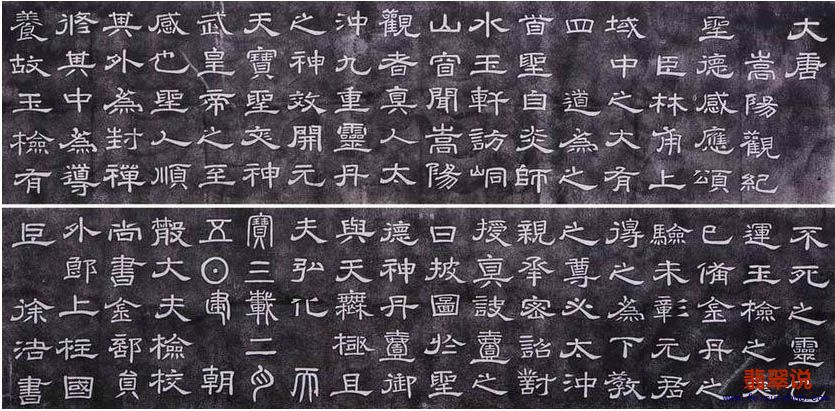 大唐
嵩陽觀紀
聖德感應頌
臣林甫上
域中之大有
四 道為之
首聖自炎師
水玉軒訪峒
山窅聞嵩陽
觀者真人太
沖九重靈丹
之神效開元
天寶聖文神
武皇帝之至
感也聖人順
其外為封禪
修其中為導
養故玉檢有
不死之靈
運玉檢之
已備金丹之
驗未彰元君
得之為下教
之尊必太沖
親承密詔對
授真訣齎之
曰披圖於聖
德神丹齎御
與天無極且
夫弘化 而
寶三載二月
五日建 朝
散大夫檢校
尚書金部員
外郎上柱國
臣 徐浩書
翡翠说